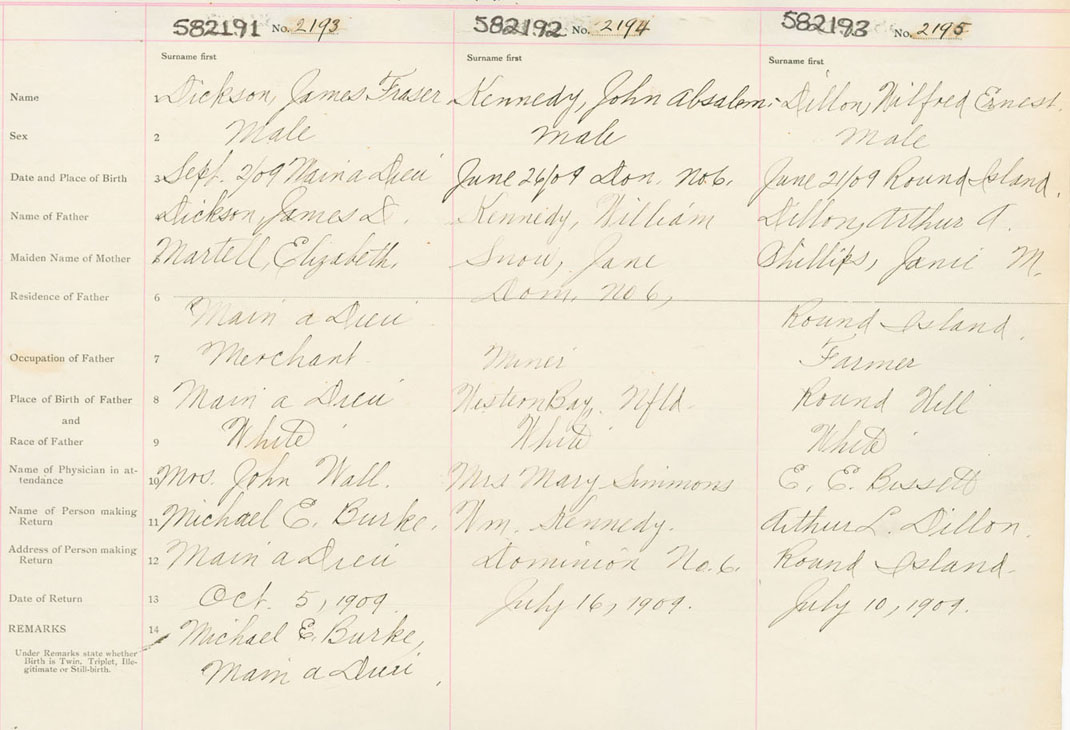 582191 No. 2193 582192 No. 2194 582193 No. 2195
Surname first Surname first Surname first
Name 1 Dickson, James Fraser Kennedy, John Absalom Dillon, Wilfred Ernest.
Sex 2 Male Male Male
Date and Place of Birth 3 Sept. 2/09 Main a Dieu June 26/09 Dom. No 6. June 21/09 Round Island.
Name of Father 4 Dickson, James D. Kennedy, William Dillon, Arthur
Maiden Name of Mother 5 Martell, Elizabeth. Snow, Jane Phillips, Janie M.
Residence of Father 6 Main a Dieu Dom. No 6, Round Island.
Occupation of Father 7 Merchant. Miner Farmer
Place of Birth of Father 8 Main a Dieu Western Bay, Nfld. Round Hill
and
Race of Father 9 White White White
Name of Physician in at-
tendance 10 Mrs. John Wall. Mrs Mary Simmons E. E. Bissett
Name of Person making
Return 11 Michael E. Burke. Wm. Kennedy. Arthur L. Dillon.
Address of Person making
Return 12 Main a Dieu Dominion No. 6. Round Island.
Date of Return 13 Oct. 5, 1909. July 16, 1909. July 10, 1909.
REMARKS 14 Michael E. Burke,
Under Remarks state whether
Birth is Twin, Triplet, Ille-
gitimate or Still-birth.
Main a Dieu.